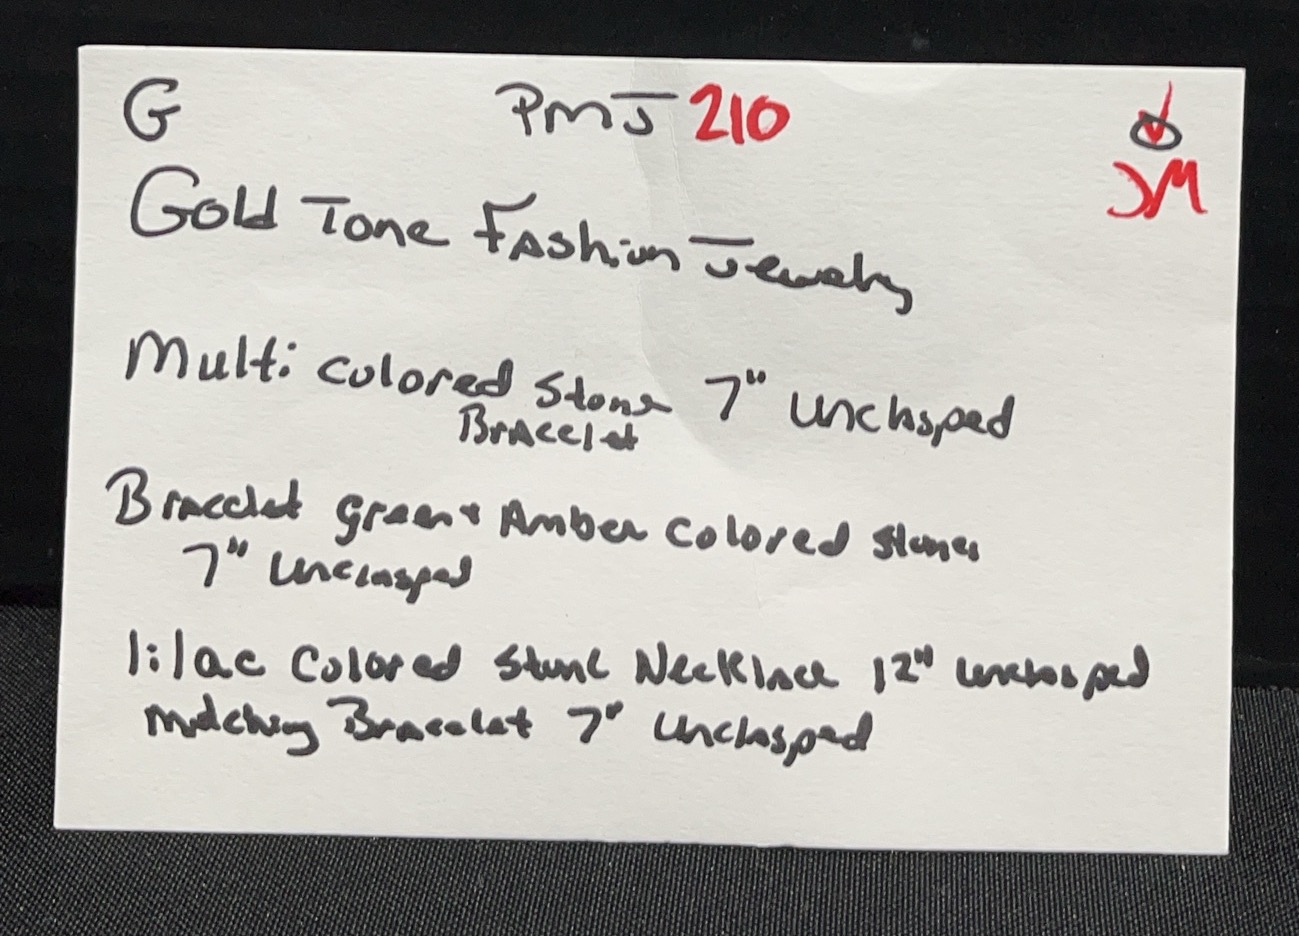 G PMJ 210
JM
Gold Tone Fashion Jewelry
Multi colored Stone 7" unclasped
Bracelet
Bracelet green + Amber Colored Stones
7" Unclasped
lilac Colored Stone Necklace 12" unclasped
matching Bracelet 7" Unclasped